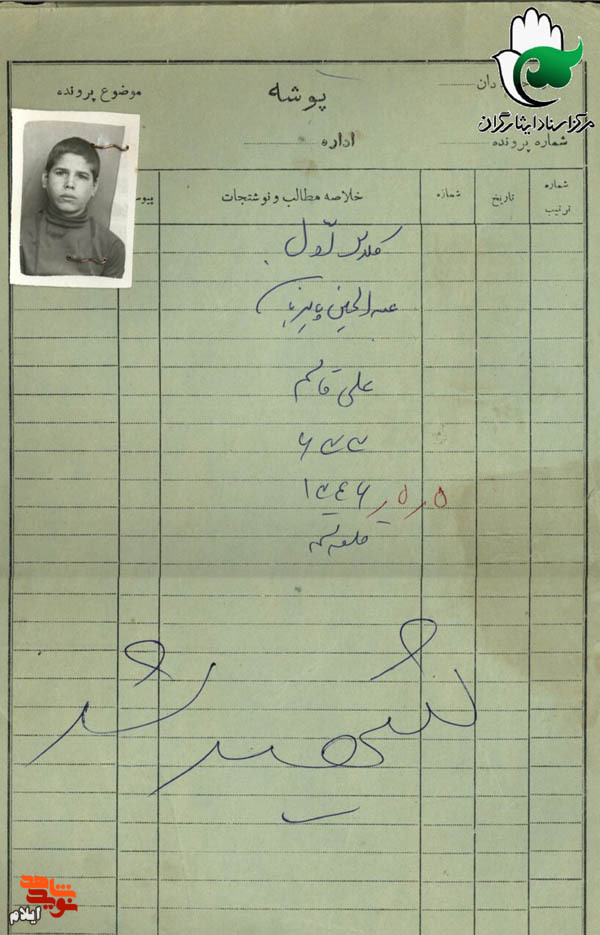 مرکز اسناد ایثارگران
دان
پوشه
موضوع پرونده
شماره پرونده
اداره
شماره ترتیب
تاریخ
شماره
خلاصه مطالب و نوشتجات
پیوست
کلاس اول
عبدالحسین
علی قاسم
۶۲۲
۱۳۴۶ ر ۵ ر ۵
شهید شد
نوید شاهد
ایلام